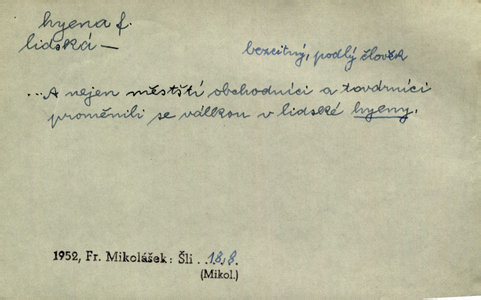 hyena f.
lidská —
bezcitný, podlý člověk
...A nejen městští obchodníci a továrníci
proměnili se válkou v lidské hyeny.
1952, Fr. Mikolášek: Šli . . 188.
(Mikol.)